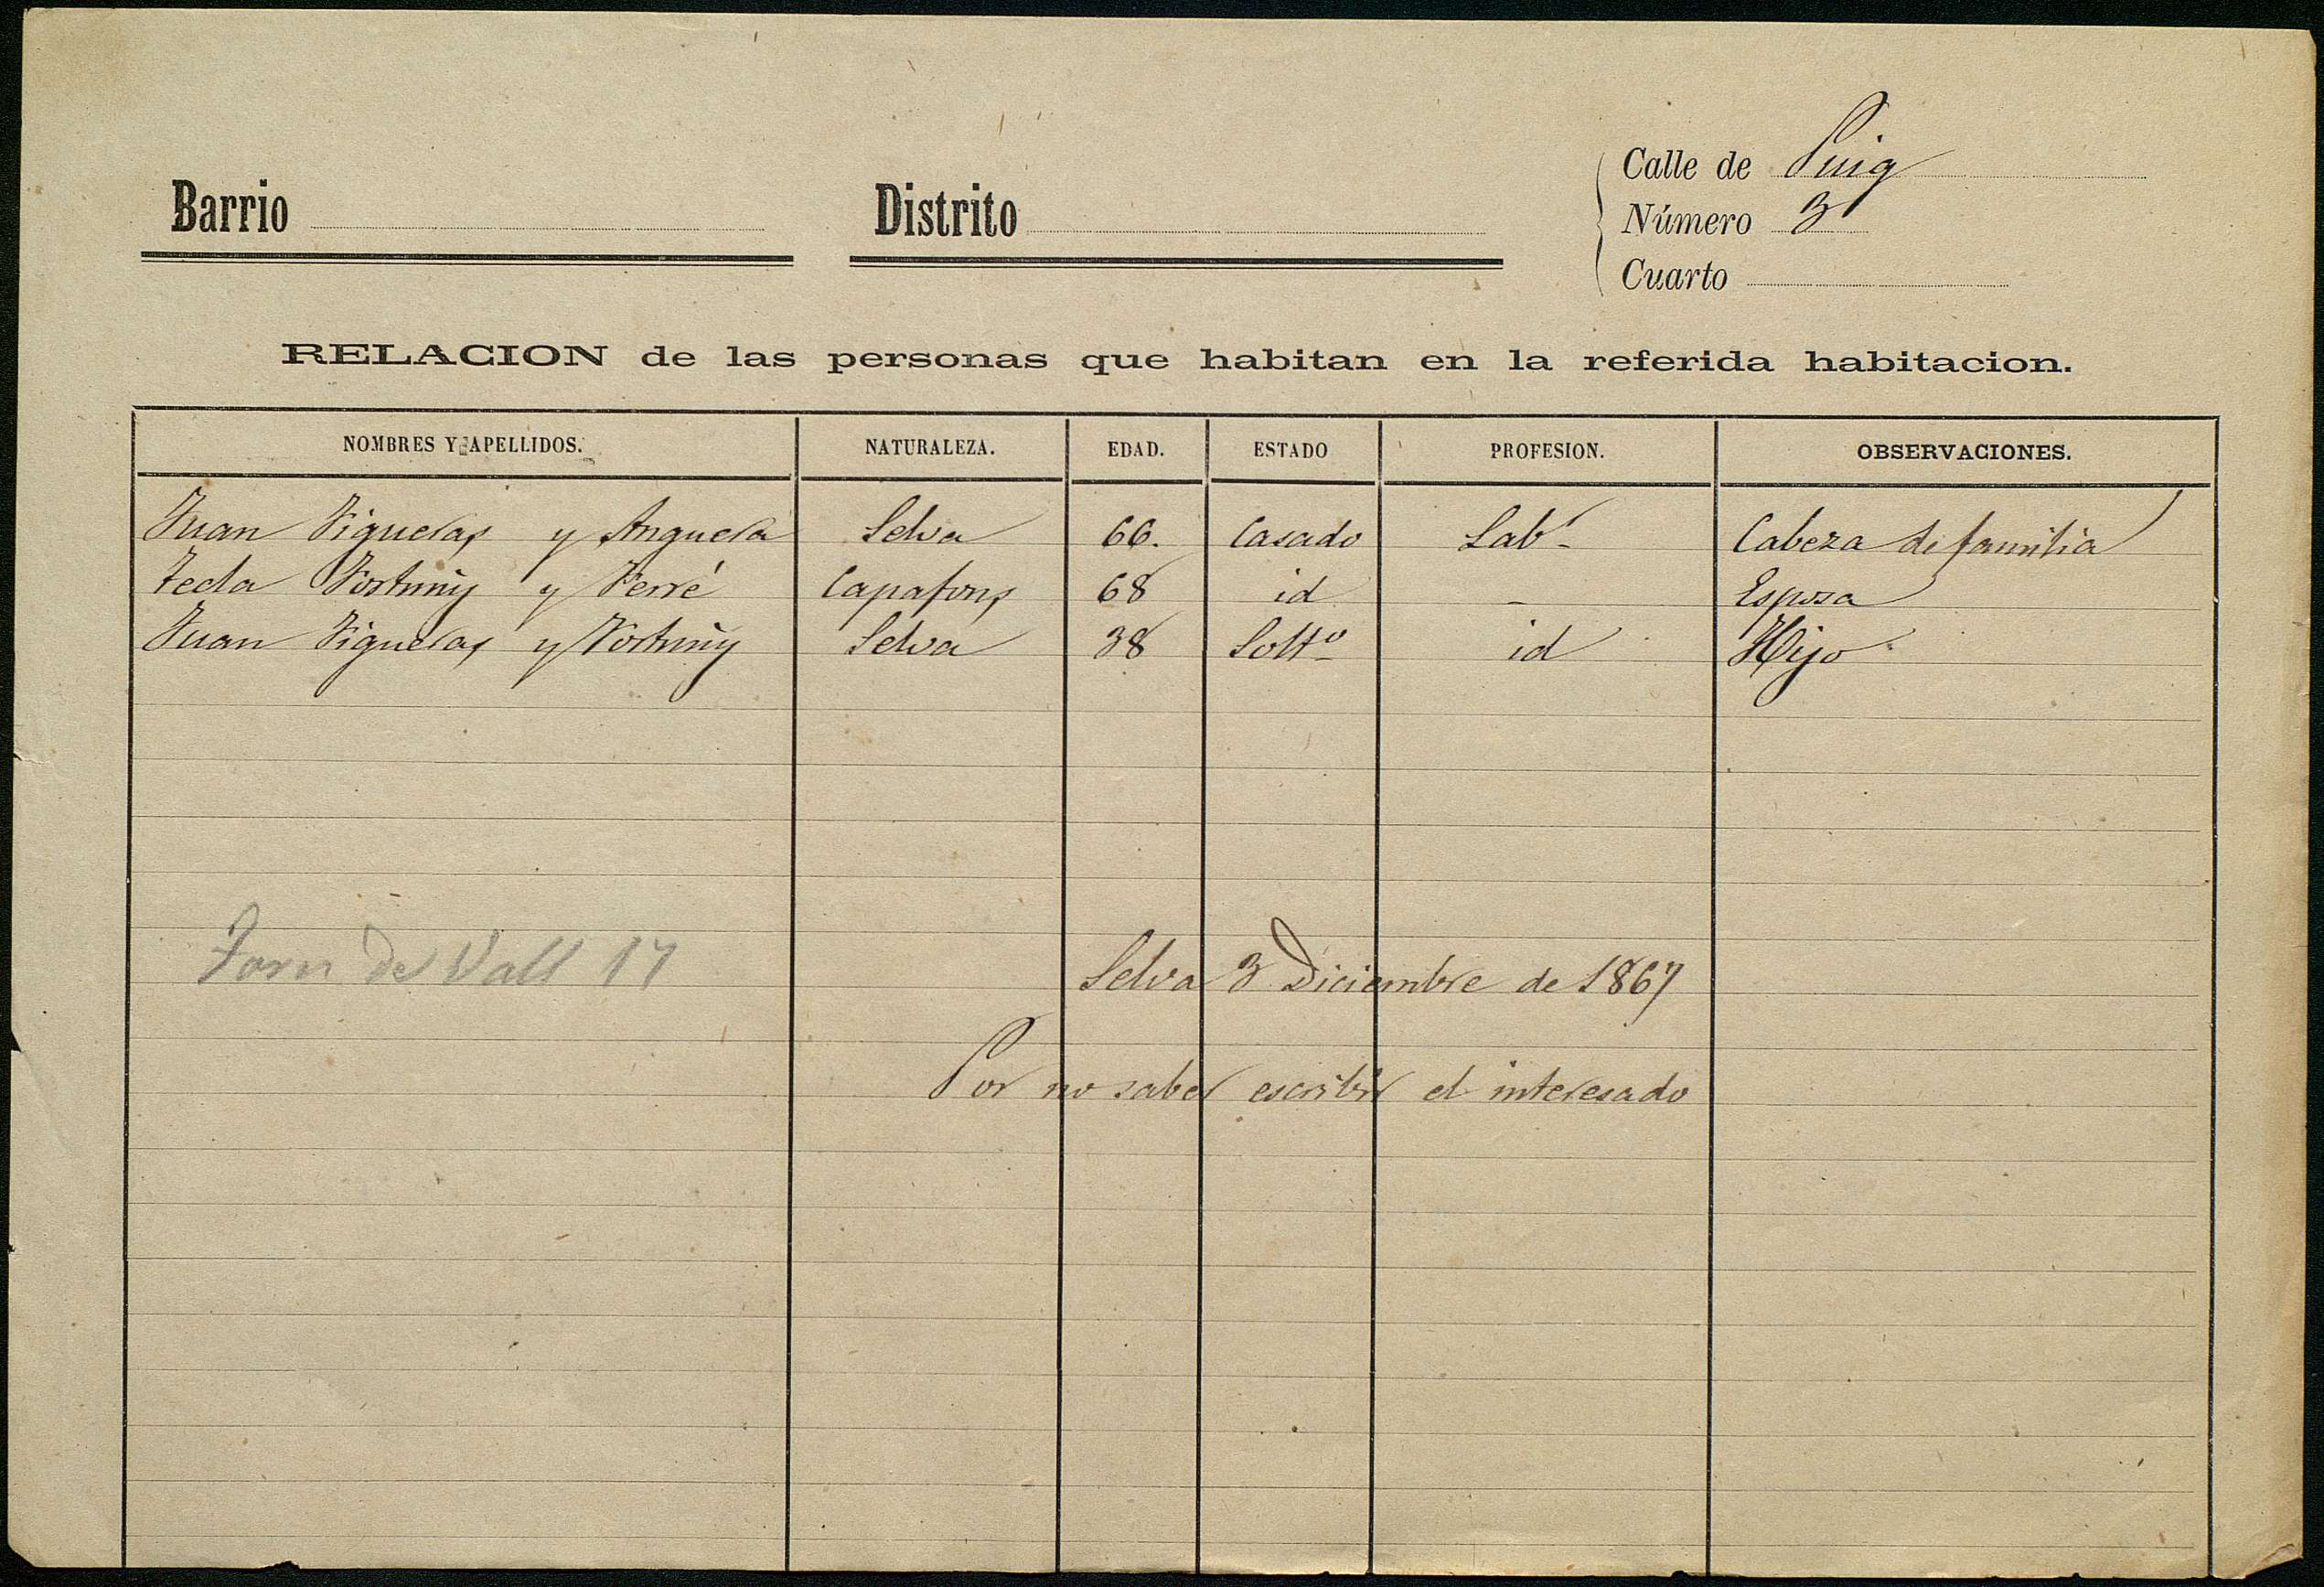 Calle de Puig
Barrio Distrito Número 3
Cuarto
RELACION de las personas que habitan en la referida habitacion.
NOMBRES Y APELLIDOS. NATURALEZA. EDAD. ESTADO PROFESION. OBSERVACIONES.
Juan Figueras y Anguera Selva 66. Casado Labr Cabeza de familia
Tecla Fortuny y Ferré Capafons 68 id - Esposa
Juan Figueras y Fortuny Selva 38 Solto id Hijo
Forn de Vall 17
Selva 3 Diciembre de 1867
Por no saber escribir el interesado